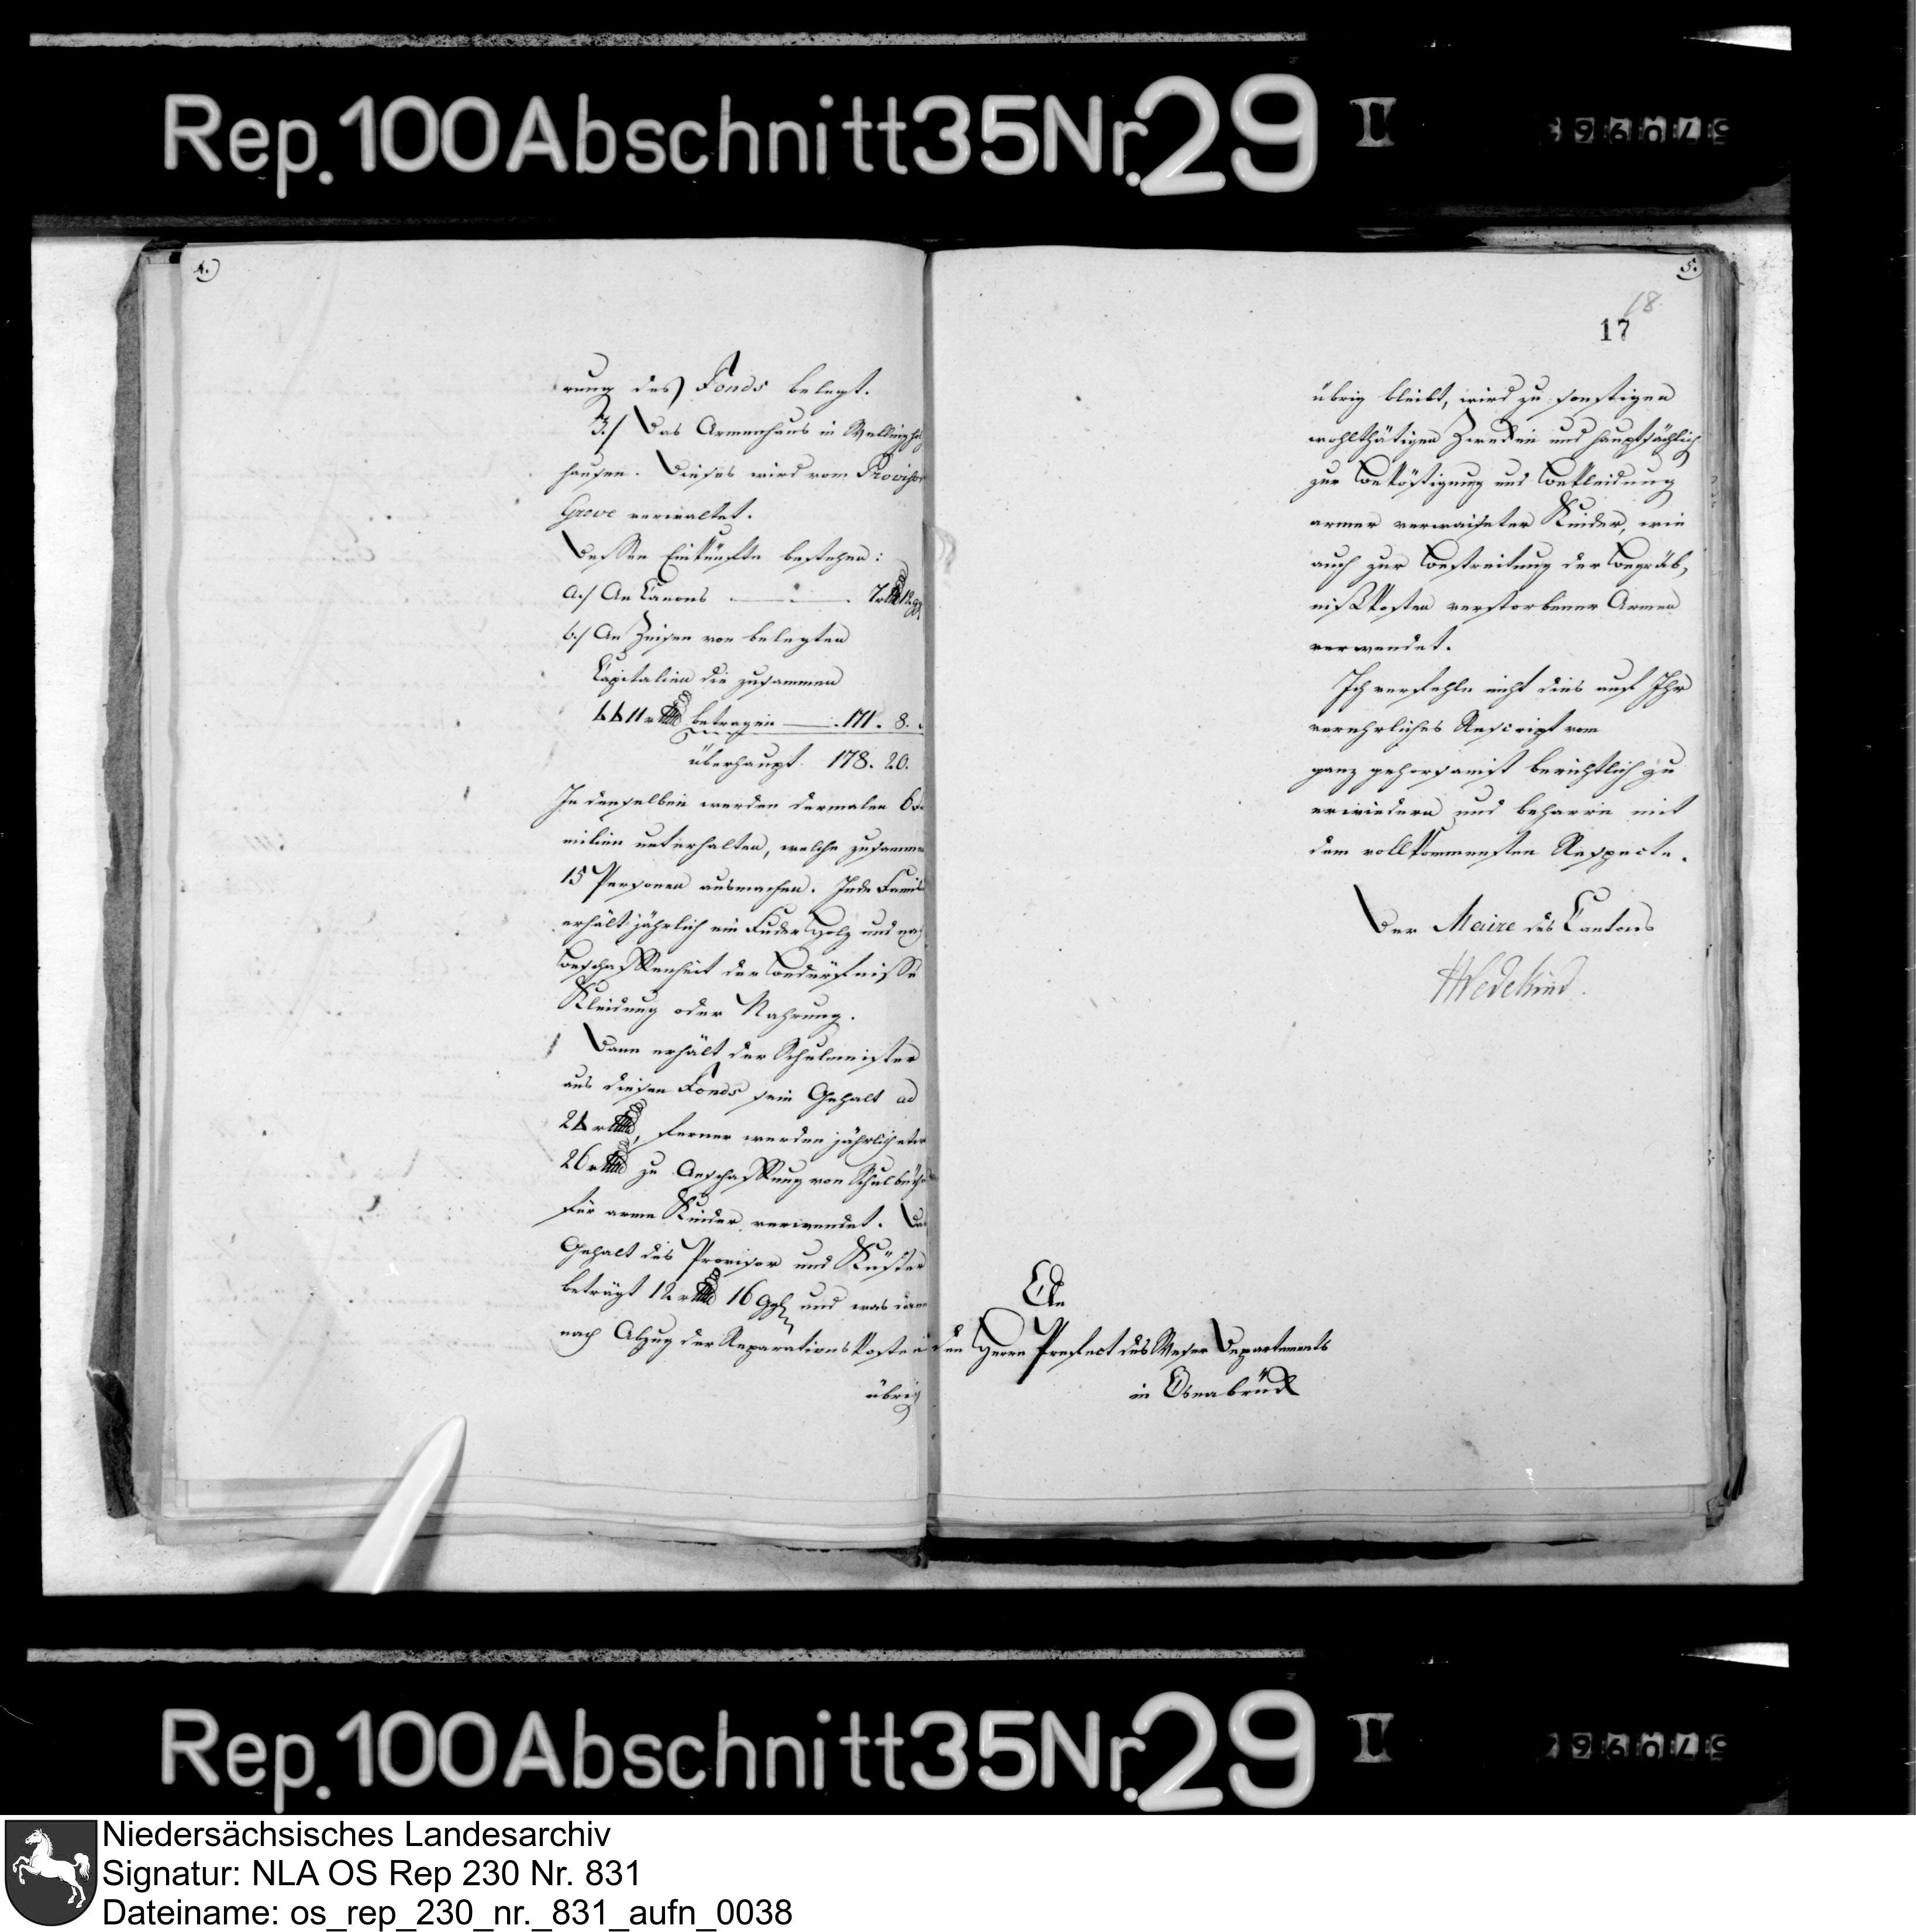 Rep. 100 Abschnitt 35 Nr. 29 I
4.)
rung des Fonds belegt.
3./ Das Armenhaus in Wellingholz
hausen. Dieses wird vom Provisor
Greve verwaltet.
Dessen Einkünfte bestehen:
a./ An Canons 7 rthlr 12 ggl
b./ An Zinsen von belegten
Capitalien die zusammen
4411 rthlr betragen 171. 8.
überhaupt 178. 20.
In denselben werden dermalen 6 Fa
milien unterhalten, welche zusammen
15 Personen ausmachen. Jede Famil
erhält jährlich ein Fuder Holz und nach
Beschaffenheit der Bedürfnisse
Kleidung oder Nahrung.
Dann erhält der Schulmeister
aus diesen Fonds sein Gehalt ad
24 rthlr, ferner werden jährlich etwa
26 rthlr zu Anschaffung von Schulbücher
für arme Kinder verwendet. Das
Gehalt des Provisor und Küster
beträgt 12 rthlr 16 Ggl und was dann
nach Abzug der Reparations Kosten
übrig
5.
18
17
übrig bleibt, wird zu sonstigen
wohlthätigen Zwecken und hauptsächlich
zur Beköstigung und Bekleidung
armer verwaiseter Kinder, wie
auch zur Bestreitung der Begräb,
nißkosten verstorbener Armen
verwendet.
Ich verfehle nicht dies auf Ihr
verehrliches Rescript vom
ganz gehorsamst berichtlich zu
erwiedern und beharre mit
dem vollkommensten Respecte.
Der Maire des Cantons
Wedekind.
An
den Herrn Prefect des Weser Departements
in Osnabrück
Rep. 100 Abschnitt 35 Nr. 29 I
Niedersächsisches Landesarchiv
Signatur: NLA OS Rep 230 Nr. 831
Dateiname: os_rep_230_nr._831_aufn_0038